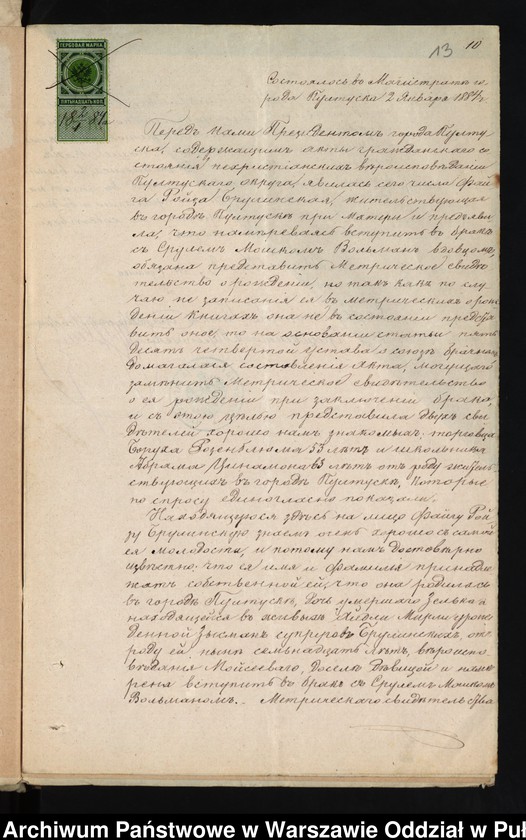 ГЕРБОВАЯ МАРКА
ПЯТЬНАДЦАТЬ КОП.
18 2/1 84
13 10
Состоялось въ Магистратѣ го
рода Пултуска 2 Января 1884 г.
Передъ нами Президентомъ города Пулту
ска, содержащимъ акты гражданскаго со
стоянія нехристіанскихъ вѣроисповѣданій
Пултускаго округа, явилась сего числа Фай
га Ройза Брулинская, жительствующая
въ городѣ Пултускѣ при матери и предъяви
ла, что намѣреваясь вступить въ бракъ
съ Срулемъ Мошкомъ Вольманъ вдовцомъ,
обязана представить Метрическое свидѣ
тельство о рожденіи, но такъ какъ по слу
чаю не записанія ея въ метрическихъ о рож
деніи книгахъ она не въ состояніи предста
вить оное, то на основаніи статьи пять
десятъ четвертой устава о союзѣ брачномъ
домагалася составленія Акта, могущаго
замѣнить Метрическое свидѣтельство
о ея рожденіи при заключеніи брака,
и съ этою цѣлью представила двухъ сви
дѣтелей хорошо намъ знакомыхъ: торговца
Боруха Розенблюма 53 лѣтъ и школьника
Абрама Цинамона 65 лѣтъ отъ роду житель
ствующихъ въ городѣ Пултускѣ, которые
по спросу единогласно показали:
Находящуюся здѣсь на лицо Файгу Рой
зу Брулинскую знаемъ очень хорошо съ самой
ея молодости, и потому намъ достовѣрно
извѣстно, что ея имя и фамилья принадле
жатъ собственной ей, что она родилась
въ городѣ Пултускѣ, дочь умершаго Зелька и
находящейся въ живыхъ Хидли Мирли урож
денной супруговъ Брулинскихъ, отъ
роду ей нынѣ семьнадцать лѣтъ, вѣроиспо
вѣданія Мойсеева, доселѣ дѣвицей и намѣ
рена вступить въ бракъ съ Срулемъ Мошкомъ
Вольманомъ. Метрическаго свидѣтельства
Archiwum Państwowe w Warszawie Oddział w Puł